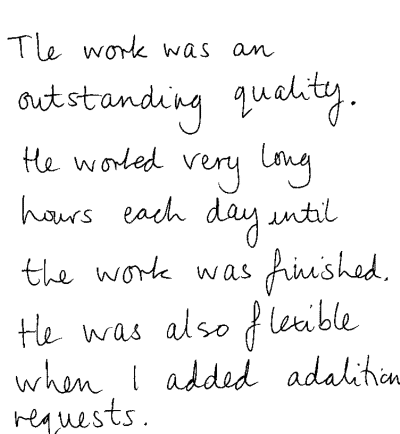 The work was an
outstanding quality.
He worked very long
hours each day until
the work was finished.
He was also flexible
when I added addition
requests.